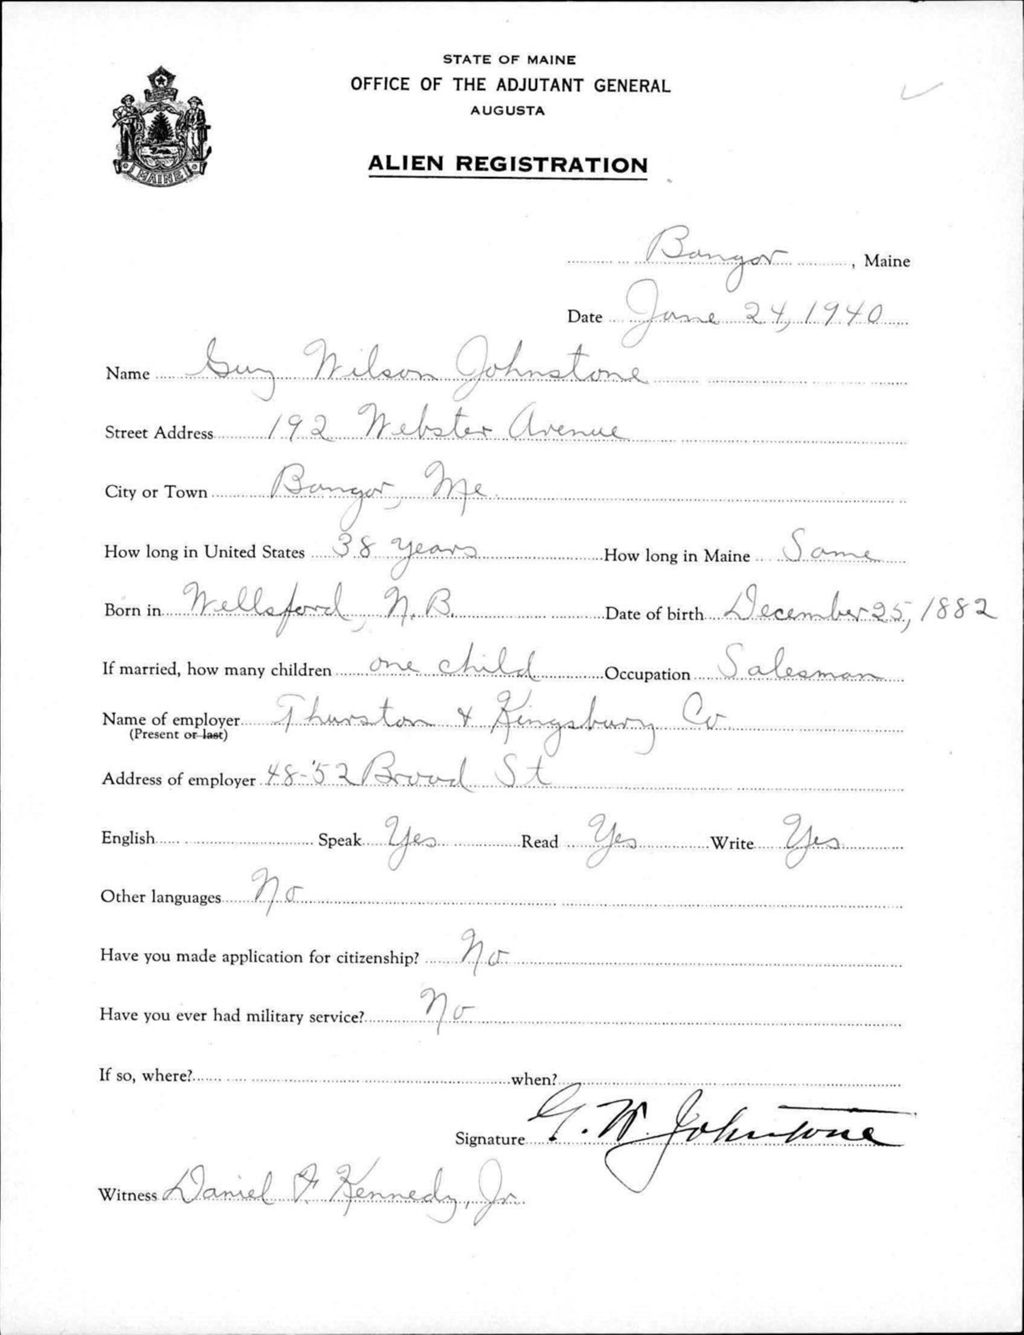 STATE OF MAINE
OFFICE OF THE ADJUTANT GENERAL
AUGUSTA
ALIEN REGISTRATION
MAINE
Bangor, Maine
Date June 24, 1940
Name Guy Wilson Johnstone
Street Address 192 Webster Avenue
City or Town Bangor, Me.
How long in United States 38 years How long in Maine Same
Born in Wellsford, N.B. Date of birth December 25, 1882
If married, how many children one child Occupation Salesman
Name of employer Thurston & Kingsbury Co
(Present or last)
Address of employer 48-52 Broad St
English Speak Yes Read Yes Write Yes
Other languages No
Have you made application for citizenship? No
Have you ever had military service? No
If so, where? when?
Signature G. W. Johnstone
Witness Daniel F. Kennedy, Jr.